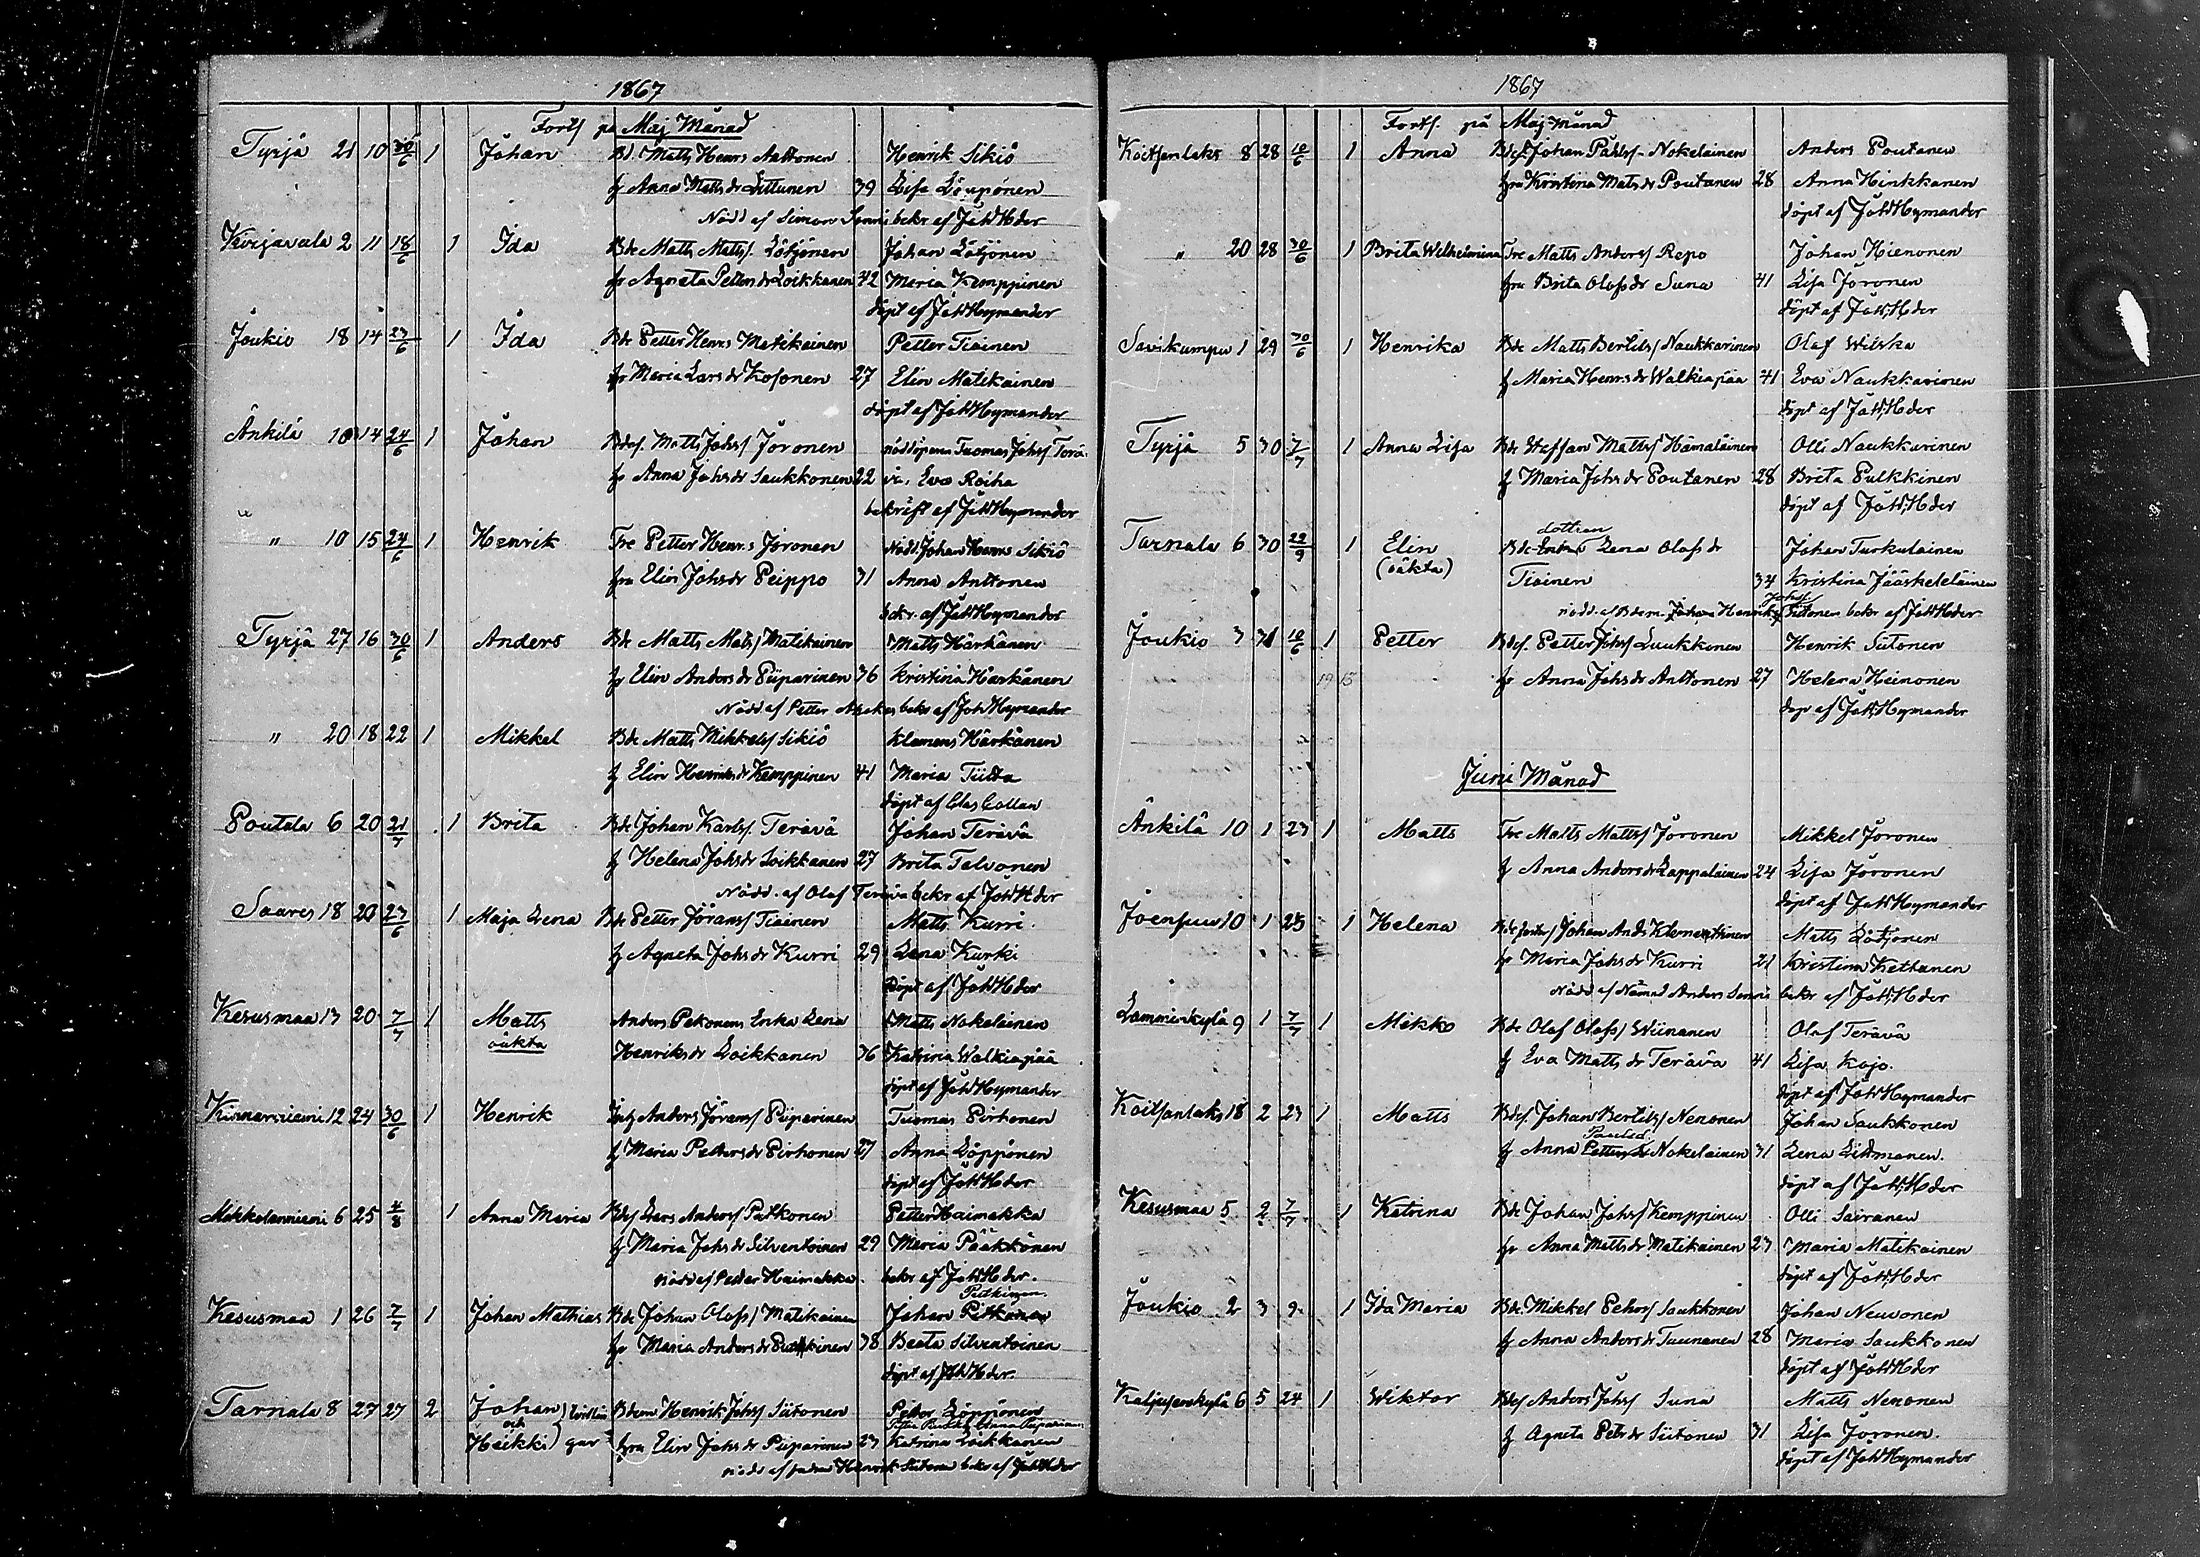 1867
Forts på Maj Månad
Tyrjä 21 10 30/6 1 Johan Bd. Matts Henrs Anttonen Henrik Sikiö
f Anna Matts dr Littunen 39 Lisa Löppönen
Nödd af Simon Sinni bekr af Joh H der
Kirjavala 2 11 18/6 1 Ida Bde Matts Matts/. Lötjönen Johan Lötjönen
fr Agneta Petters dr Loikkanen 42 Maria Kemppinen
döpt af Joh Heymander
Joukio 18 14 23/6 1 Ida Bde Petter Henrs Matikainen Petter Tiainen
fr Maria Lars dr Kosonen 27 Elin Matikainen
döpt af Joh Heymander
Änkilä 10 14 24/6 1 Johan Bdes. Matts Johs/ Joronen nöddöparen Tuomas Johs/ Terä-
fr Anna Johs dr Saukkonen 22 vä, Eva Roiha
bekräft af Joh Heymander
" 10 15 24/6 1 Henrik Tre Petter Henr.s Joronen Nödd Johan Henrs Sikiö
fru Elin Johs dr Peippo 31 Anna Anttonen
bekr. af Joh Heymander
Tyrjä 27 16 30/6 1 Anders Bde Matts Mats/ Matikainen Matts Härkänen
fr Elin Anders dr Piiparinen 36 Kristina Härkänen
Nödd af Petter bekr af Joh Heymander
" 20 18 22 1 Mikkel Bde Matts Mikkels/ Sikiö Klemens Härkänen
f Elin Henriks dr Kemppinen 41 Maria Tiitta
döpt af Clas Collan
Poutala 6 20 21/7 1 Brita Bde Johan Karls/. Terävä Johan Terävä
f Helena Johs dr Loikkanen 27 Brita Talvonen
Nödd. af Olof Terävä bekr af Joh H der
Saares 18 20 23/6 1 Maja Lena Bde Petter Jörans/ Tiainen Matts Kurri
f Agneta Johs dr Kurri 29 Lena Kurki
döpt af Joh H der
Kesusmaa 13 20 7/7 1 Matts Anders Pekonens Enka Lena Matts Nokelainen
oäkta Henriks dr Loikkanen 36 Katrina Walkiapää
döpt af Joh Heymander
Kinnarniemi 12 24 30/6 1 Henrik Inh Anders Jörans/ Piiparinen Tuomas Pirhonen
f Maria Petters dr Pirhonen 27 Anna Löppönen
döpt af Joh H der
Mikkolanniemi 6 25 4/8 1 Anna Maria Bds/ Lars Anders/ Pulkonen Petter Haimakka
f Maria Johs dr Silventoinen 29 Maria Pääkkönen
nödd af Petter Haimakka. bekr af Joh H der.
Putkinen
Kesusmaa 1 26 7/7 1 Johan Mathias Bde Johan Olofs/ Matikainen Johan
fr Maria Anders dr Putkinen 38 Beata Silventoinen
döpt af Joh H der.
Tarnala 8 27 27 2 Johan } tvillin Bdem Henrik Johs/ Siitonen Petter Löppönen
och
Heikki } gar fru Elin Johs dr Piiparinen 23 Katrina Loikkanen
nödd af fadren Henrik Siitonen bekr af Joh H der
1867
Forts. på Maj Månad
Koitsanlaks 8 28 10/6 1 Anna Bdes/ Johan Påhls/- Nokelainen Anders Poutanen
fru Kristina Mats dr Poutanen 28 Anna Hinkkanen
döpt af Joh Heymander
" 20 28 30/6 1 Brita Wilhelmina Tre Matts Anders/ Repo Johan Hienonen
fru Brita Olofs dr Suna 41 Lisa Joronen
döpt af Joh H der
Savikumpu 1 29 30/6 1 Henrika Bde Matts Bertils/ Naukkarinen Olof Wilska
f Maria Henrs dr Walkiapää 41 Eva Naukkarinen
döpt af Joh H der
Tyrjä 5 30 7/7 1 Anna Lisa Bde Staffan Matts/ Hämäläinen Olli Naukkarinen
f Maria Johs dr Poutanen 28 Brita Pulkkinen
döpt af Joh H der
dottren
Tarnala 6 30 22/9 1 Elin Bde Lena Olofs dr Johan Turkulainen
(oäkta) Tiainen 34 Kristina Jääskeläinen
nödd. af Bdem. Johan Henriks/ Siitonen bekr af Joh H der
Joukio 3 31 10/6 1 Petter Bdes/. Petter Johs/ Luukkonen Henrik Siitonen
19 15 fr Anna Johs dr Anttonen 27 Helena Heinonen
döp af Joh Heymander
Juni Månad
Änkilä 10 1 23 1 Matts Tre Matts Matts/ Joronen Mikkel Joronen
f Anna Anders dr Lappalainen 24 Lisa Joronen
döpt af Joh Heymander
Joenpuu 10 1 23 1 Helena Johan Ands Klementtinen Matts Lötjonen
fr Maria Johs dr Kurri 21 Kristina Kettunen
Nödd af Nämnd Anders Sinni bekr af Joh H der
Lamminkylä 9 1 7/7 1 Mikko Bde Olof Olofs/ Wiinanen Olof Terävä
f Eva Matts dr Terävä 41 Lisa Kojo.
döpt af Joh Heymander
Koitsanlaks 18 2 23 1 Matts Bdes/. Johan Bertils/ Nenonen Johan Saukkonen
f Anna Petters dr Nokelainen 31 Lena Littmanen.
döpt af Joh H der
Kesusmaa 5 2 7/7 1 Katrina Bde Johan Johs/ Kemppinen Olli Sairanen
fr Anna Matts dr Matikainen 23 Maria Matikainen
döpt af Joh H der
Joukio 2 3 9 1 Ida Maria Bde Mikkel Pehrs/ Saukkonen Johan Neuvonen
f Anna Anders dr Tuunanen 28 Maria Saukkonen
döpt af Joh H der
Kaljusenkylä 6 5 24 1 Wiktor Bdes/ Anders Johs/ Suna Matts Nenonen
f Agneta Pets dr Siitonen 31 Lisa Joronen.
döpt af Joh Heymander